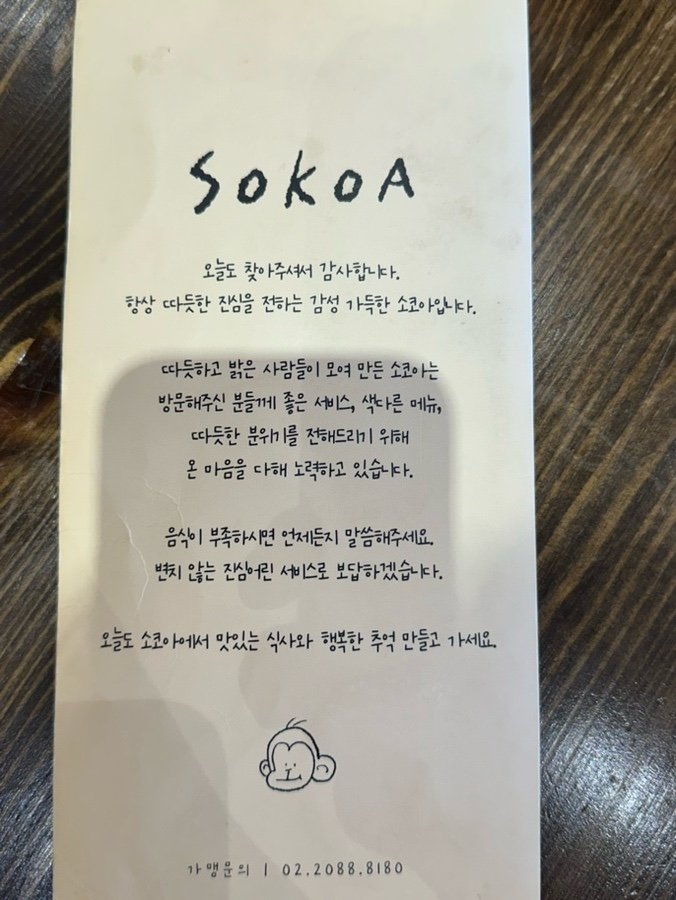 SOKOA
오늘도 찾아주셔서 감사합니다.
항상 따듯한 진심을 전하는 감성 가득한 소코아입니다.
따듯하고 밝은 사람들이 모여 만든 소코아는
방문해주신 분들께 좋은 서비스, 색다른 메뉴,
따듯한 분위기를 전해드리기 위해
온 마음을 다해 노력하고 있습니다.
음식이 부족하시면 언제든지 말씀해주세요.
변치 않는 진심어린 서비스로 보답하겠습니다.
오늘도 소코아에서 맛있는 식사와 행복한 추억 만들고 가세요.
가맹문의 | 02.2088.8180